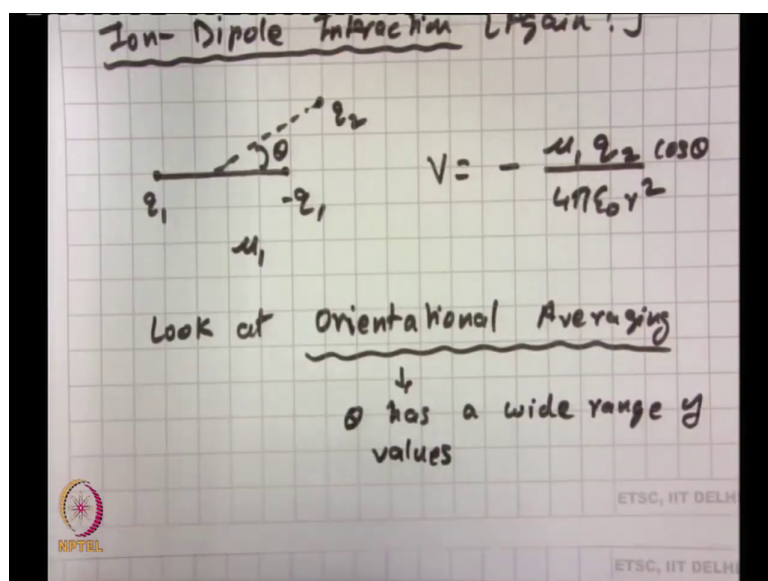 Ion- Dipole Interaction [Again!]
q₂
θ
V = - μ₁ q₂ cosθ / 4πε₀r²
q₁ -q₁
μ₁
Look at Orientational Averaging
↓
θ has a wide range of
values
ETSC, IIT DELH
NPTEL
ETSC, IIT DELH